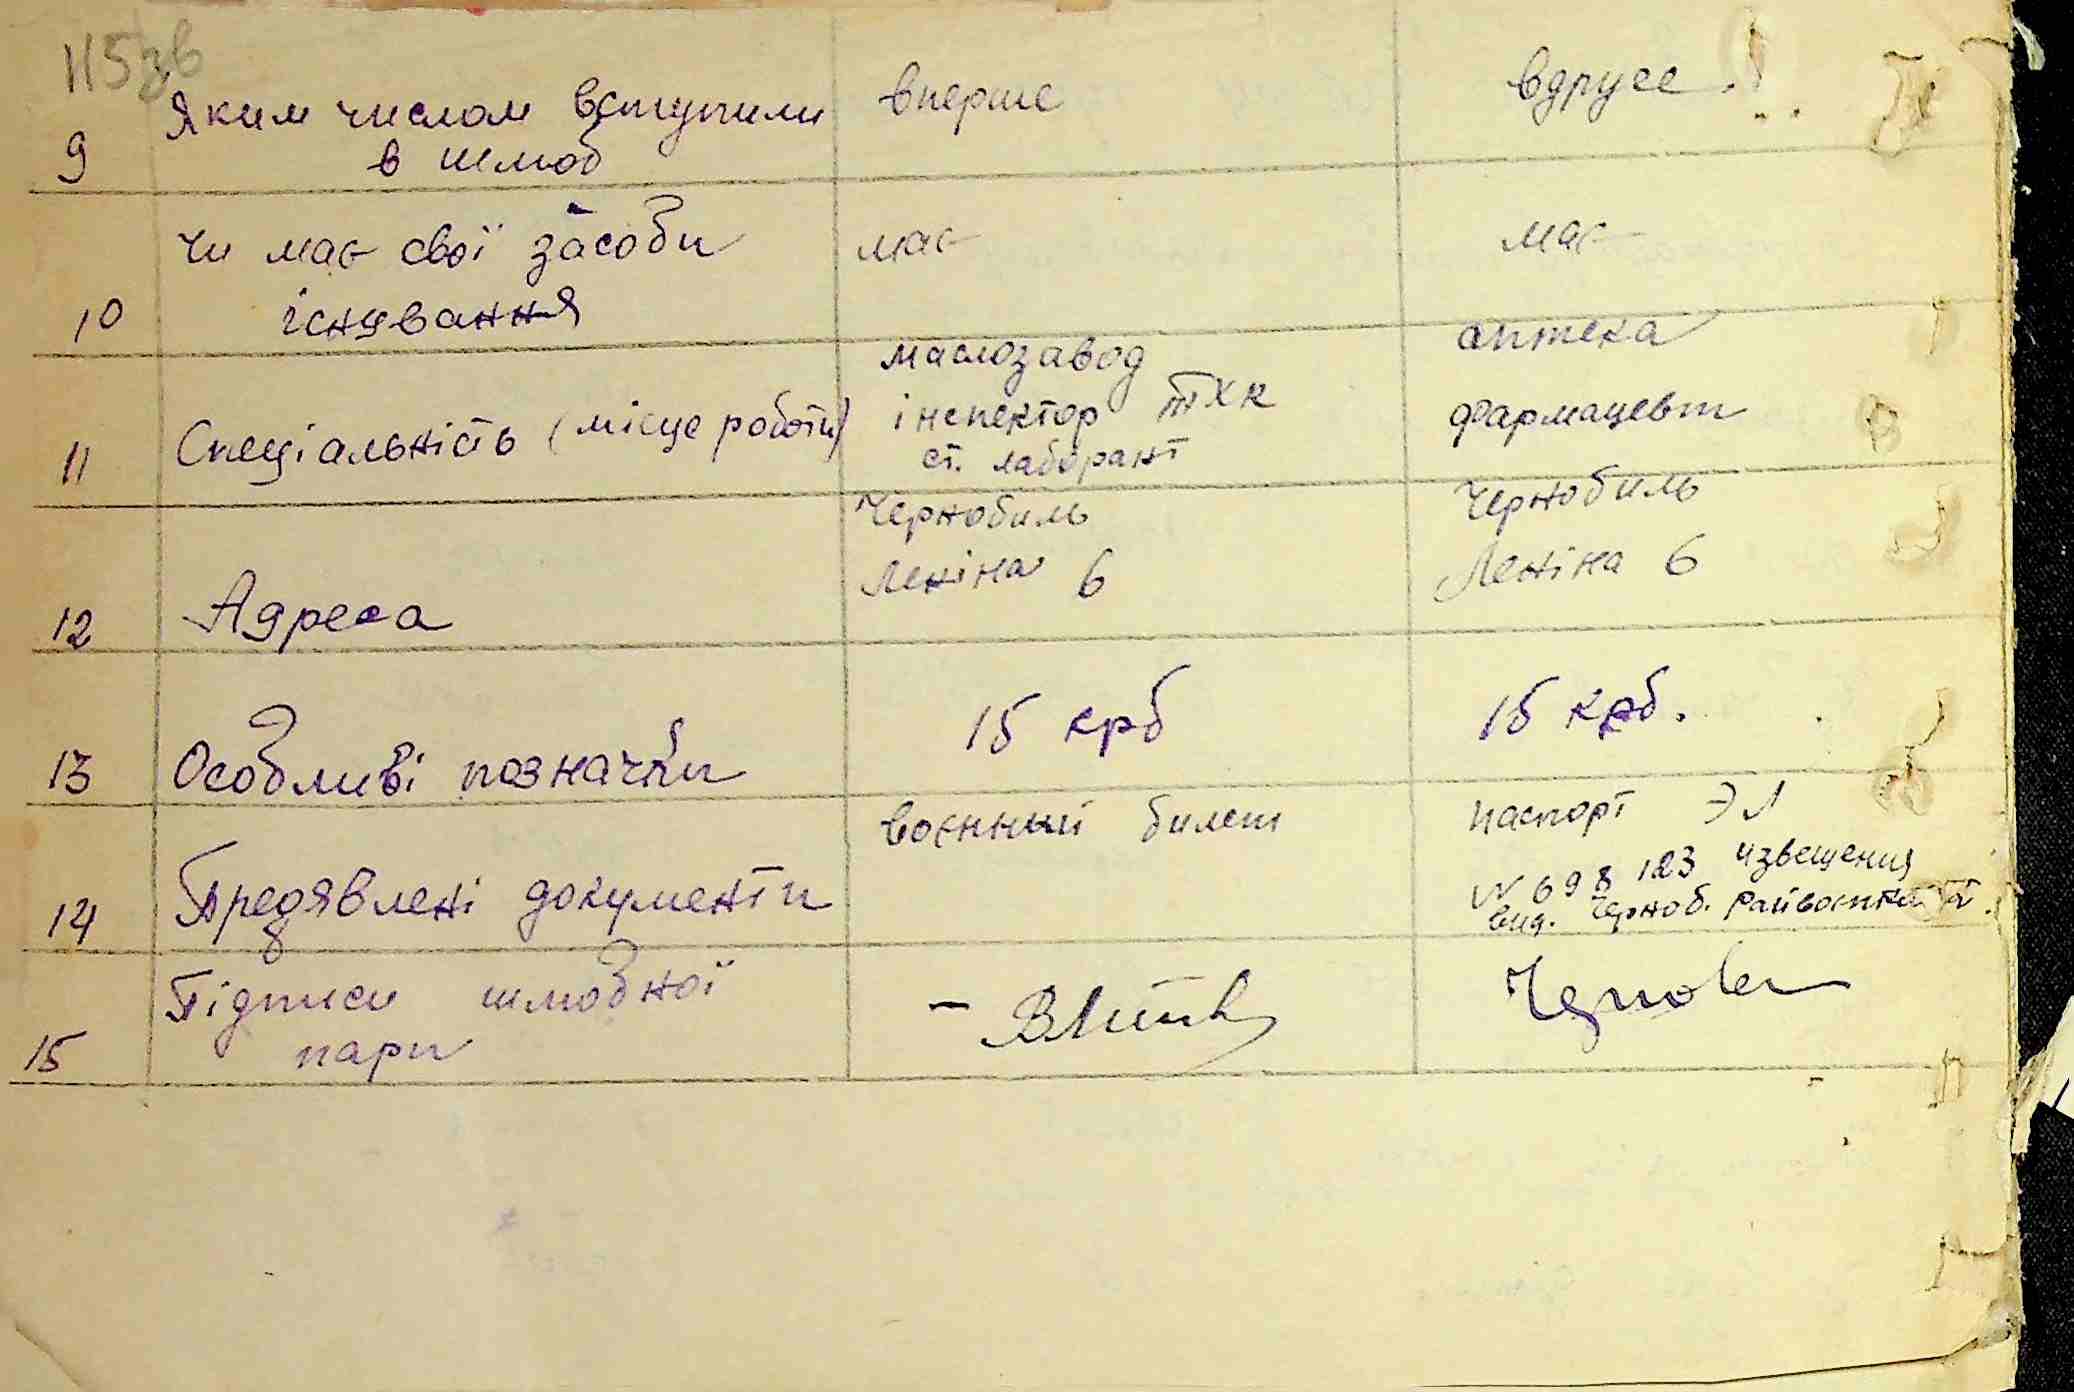 115зв
9 Яким числом вступили вперше вдруге
в шлюб
10 Чи має свої засоби має має
існування
11 Спеціальність (місце роботи) маслозавод аптека
інспектор ТХК фармацевт
ст. лаборант
12 Адреса Чернобиль Чернобиль
Леніна 6 Леніна 6
13 Особливі позначки 15 крб 15 крб.
14 Предявлені документи воєнный билет паспорт ЭЛ
№ 698123 извещения
вид. Черноб.
15 Підписи шлюбної
пари